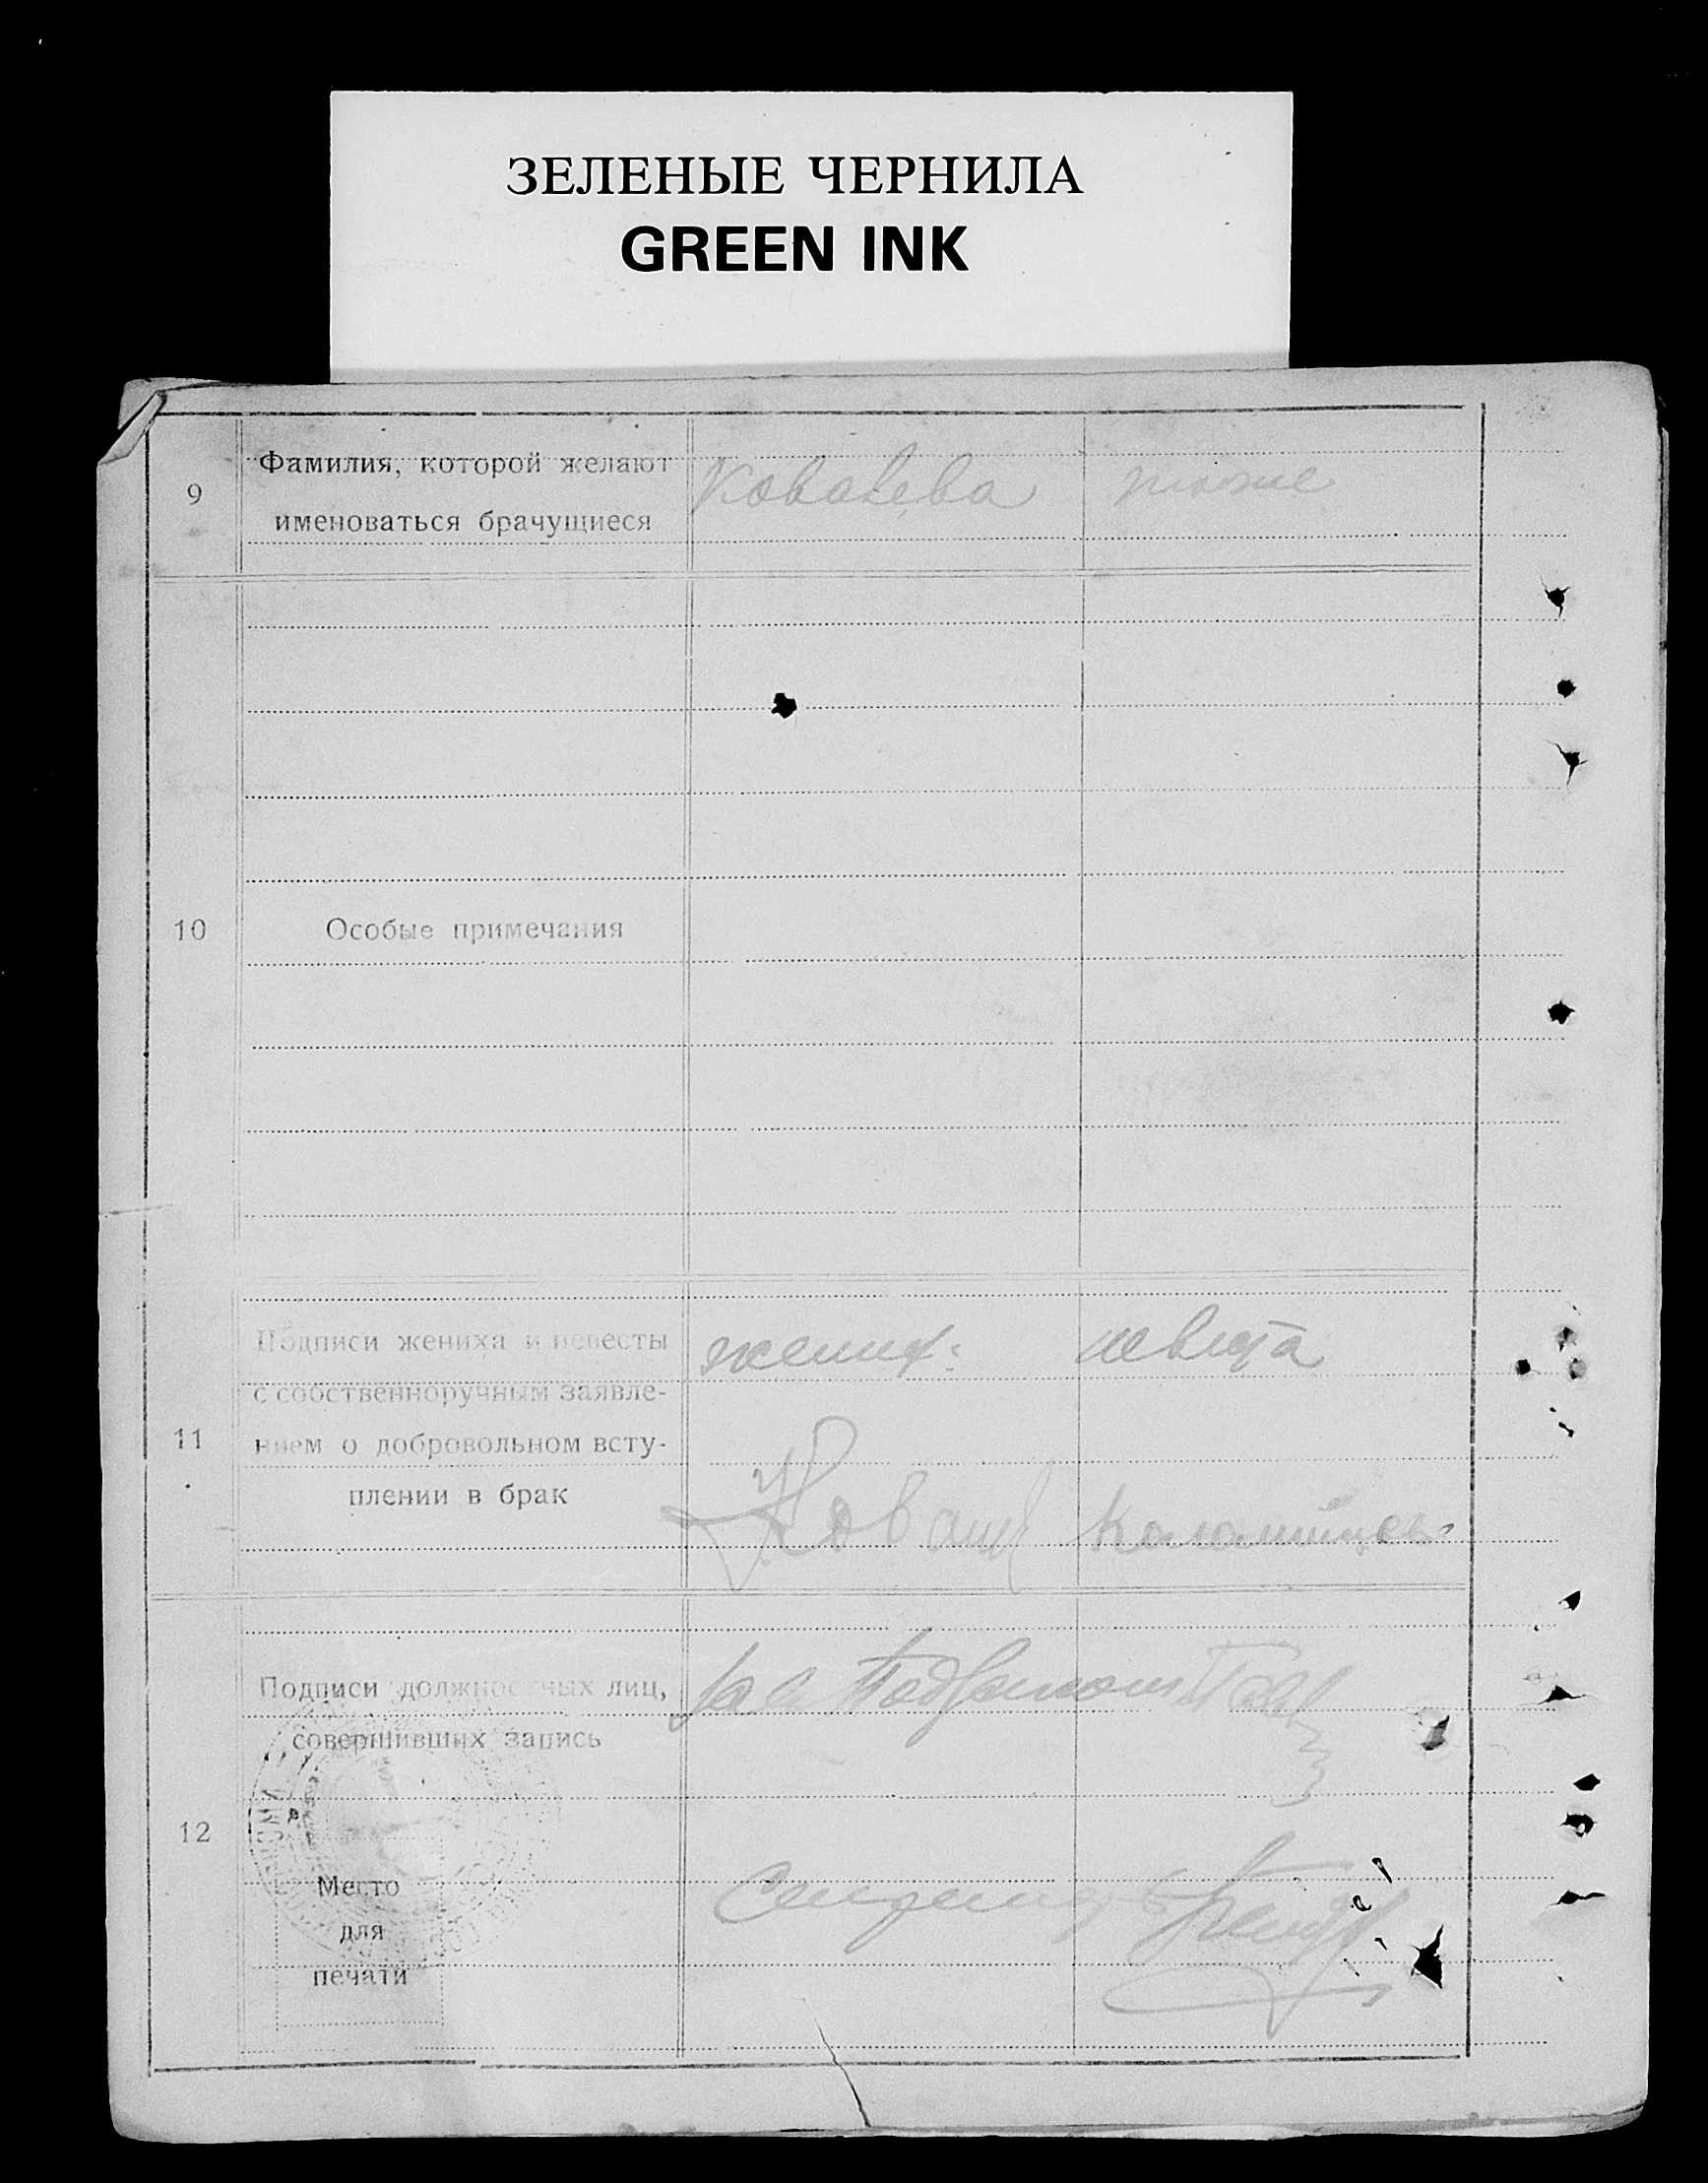 ЗЕЛЕНЫЕ ЧЕРНИЛА
GREEN INK
9
Фамилия, которой желают
именоваться брачущиеся
Ковалева тоже
10
Особые примечания
11
Подписи жениха и невесты
с собственноручным заявле-
нием о добровольном всту-
плении в брак
жених: невеста
Ковалев
12
Подписи должностных лиц,
совершивших запись
Место
для
печати